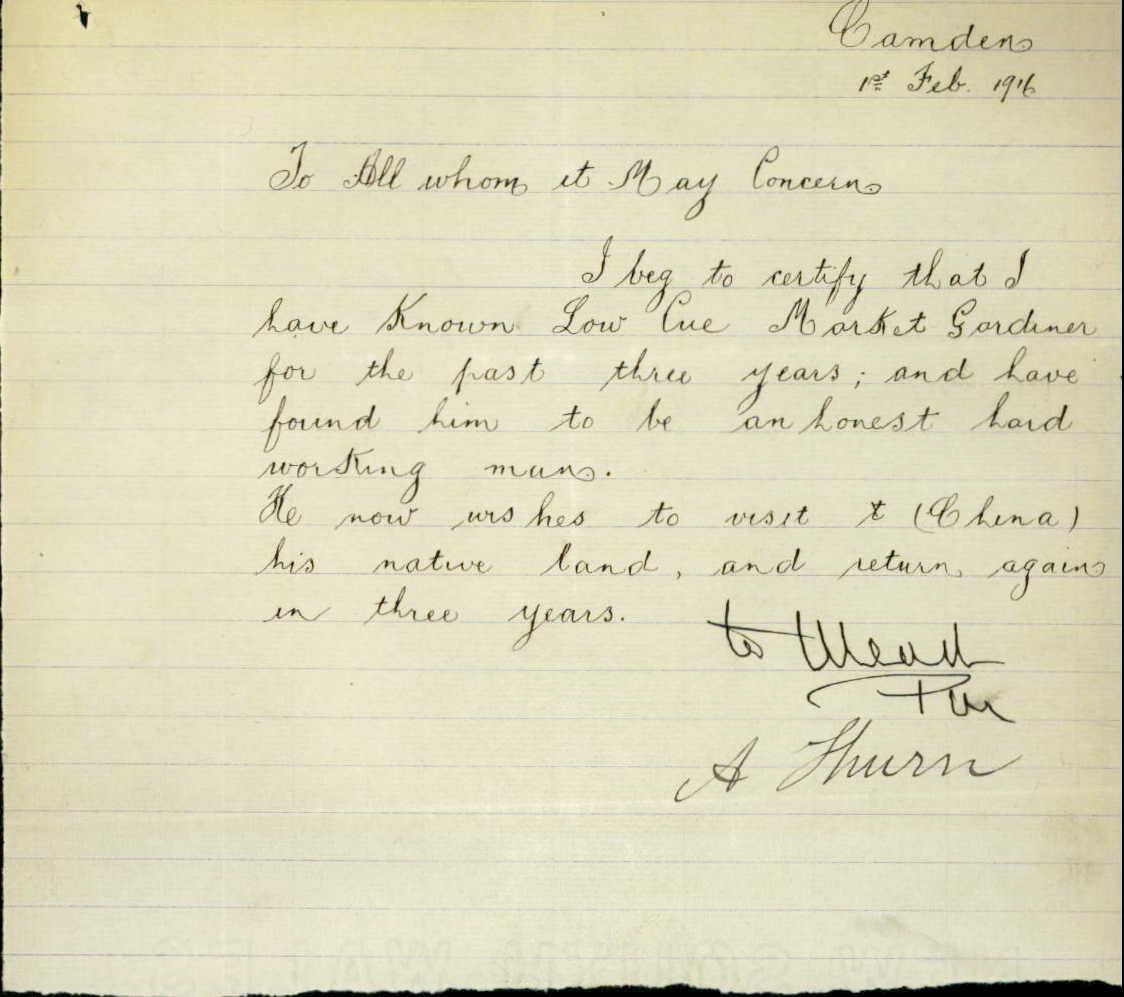 Camden
1st Feb. 1916
To All whom it May Concern
I beg to certify that I
have Known Low Cue Market Gardiner
for the past three years; and have
found him to be an honest hard
working man.
He now wishes to visit t (China)
his native land, and return again
in three years.
A Thurn
NEW SOUTH WALES